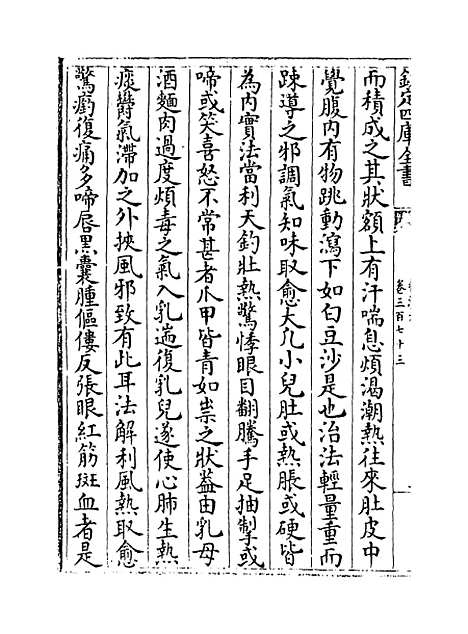 欽定四庫全書
卷三百七十三
而積成之其狀額上有汗喘息煩渴潮熱往來肚皮中
覺腹内有物跳動瀉下如白豆沙是也治法輕量重而
踈導之邪調氣知味取愈大凢小兒肚或熱脹或硬皆
為内實法當利天釣壯熱驚悸眼目翻騰手足抽掣或
啼或笑喜怒不常甚者爪甲皆青如祟之狀益由乳母
酒麵肉過度煩毒之氣入乳遄復乳兒遂使心肺生熱
痰欝氣滯加之外挾風邪致有此耳法解利風熱取愈
驚癎復痛多啼唇黒囊腫傴僂反張眼紅筋斑血者是